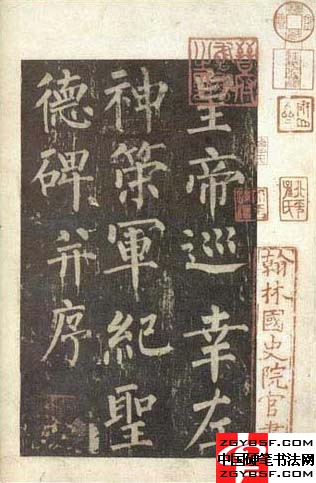 皇帝巡幸左
神策軍紀聖
德碑并序
翰林國史院官書
ZGYBSF.COM
中国硬笔书法网
ZGYBSF.COM